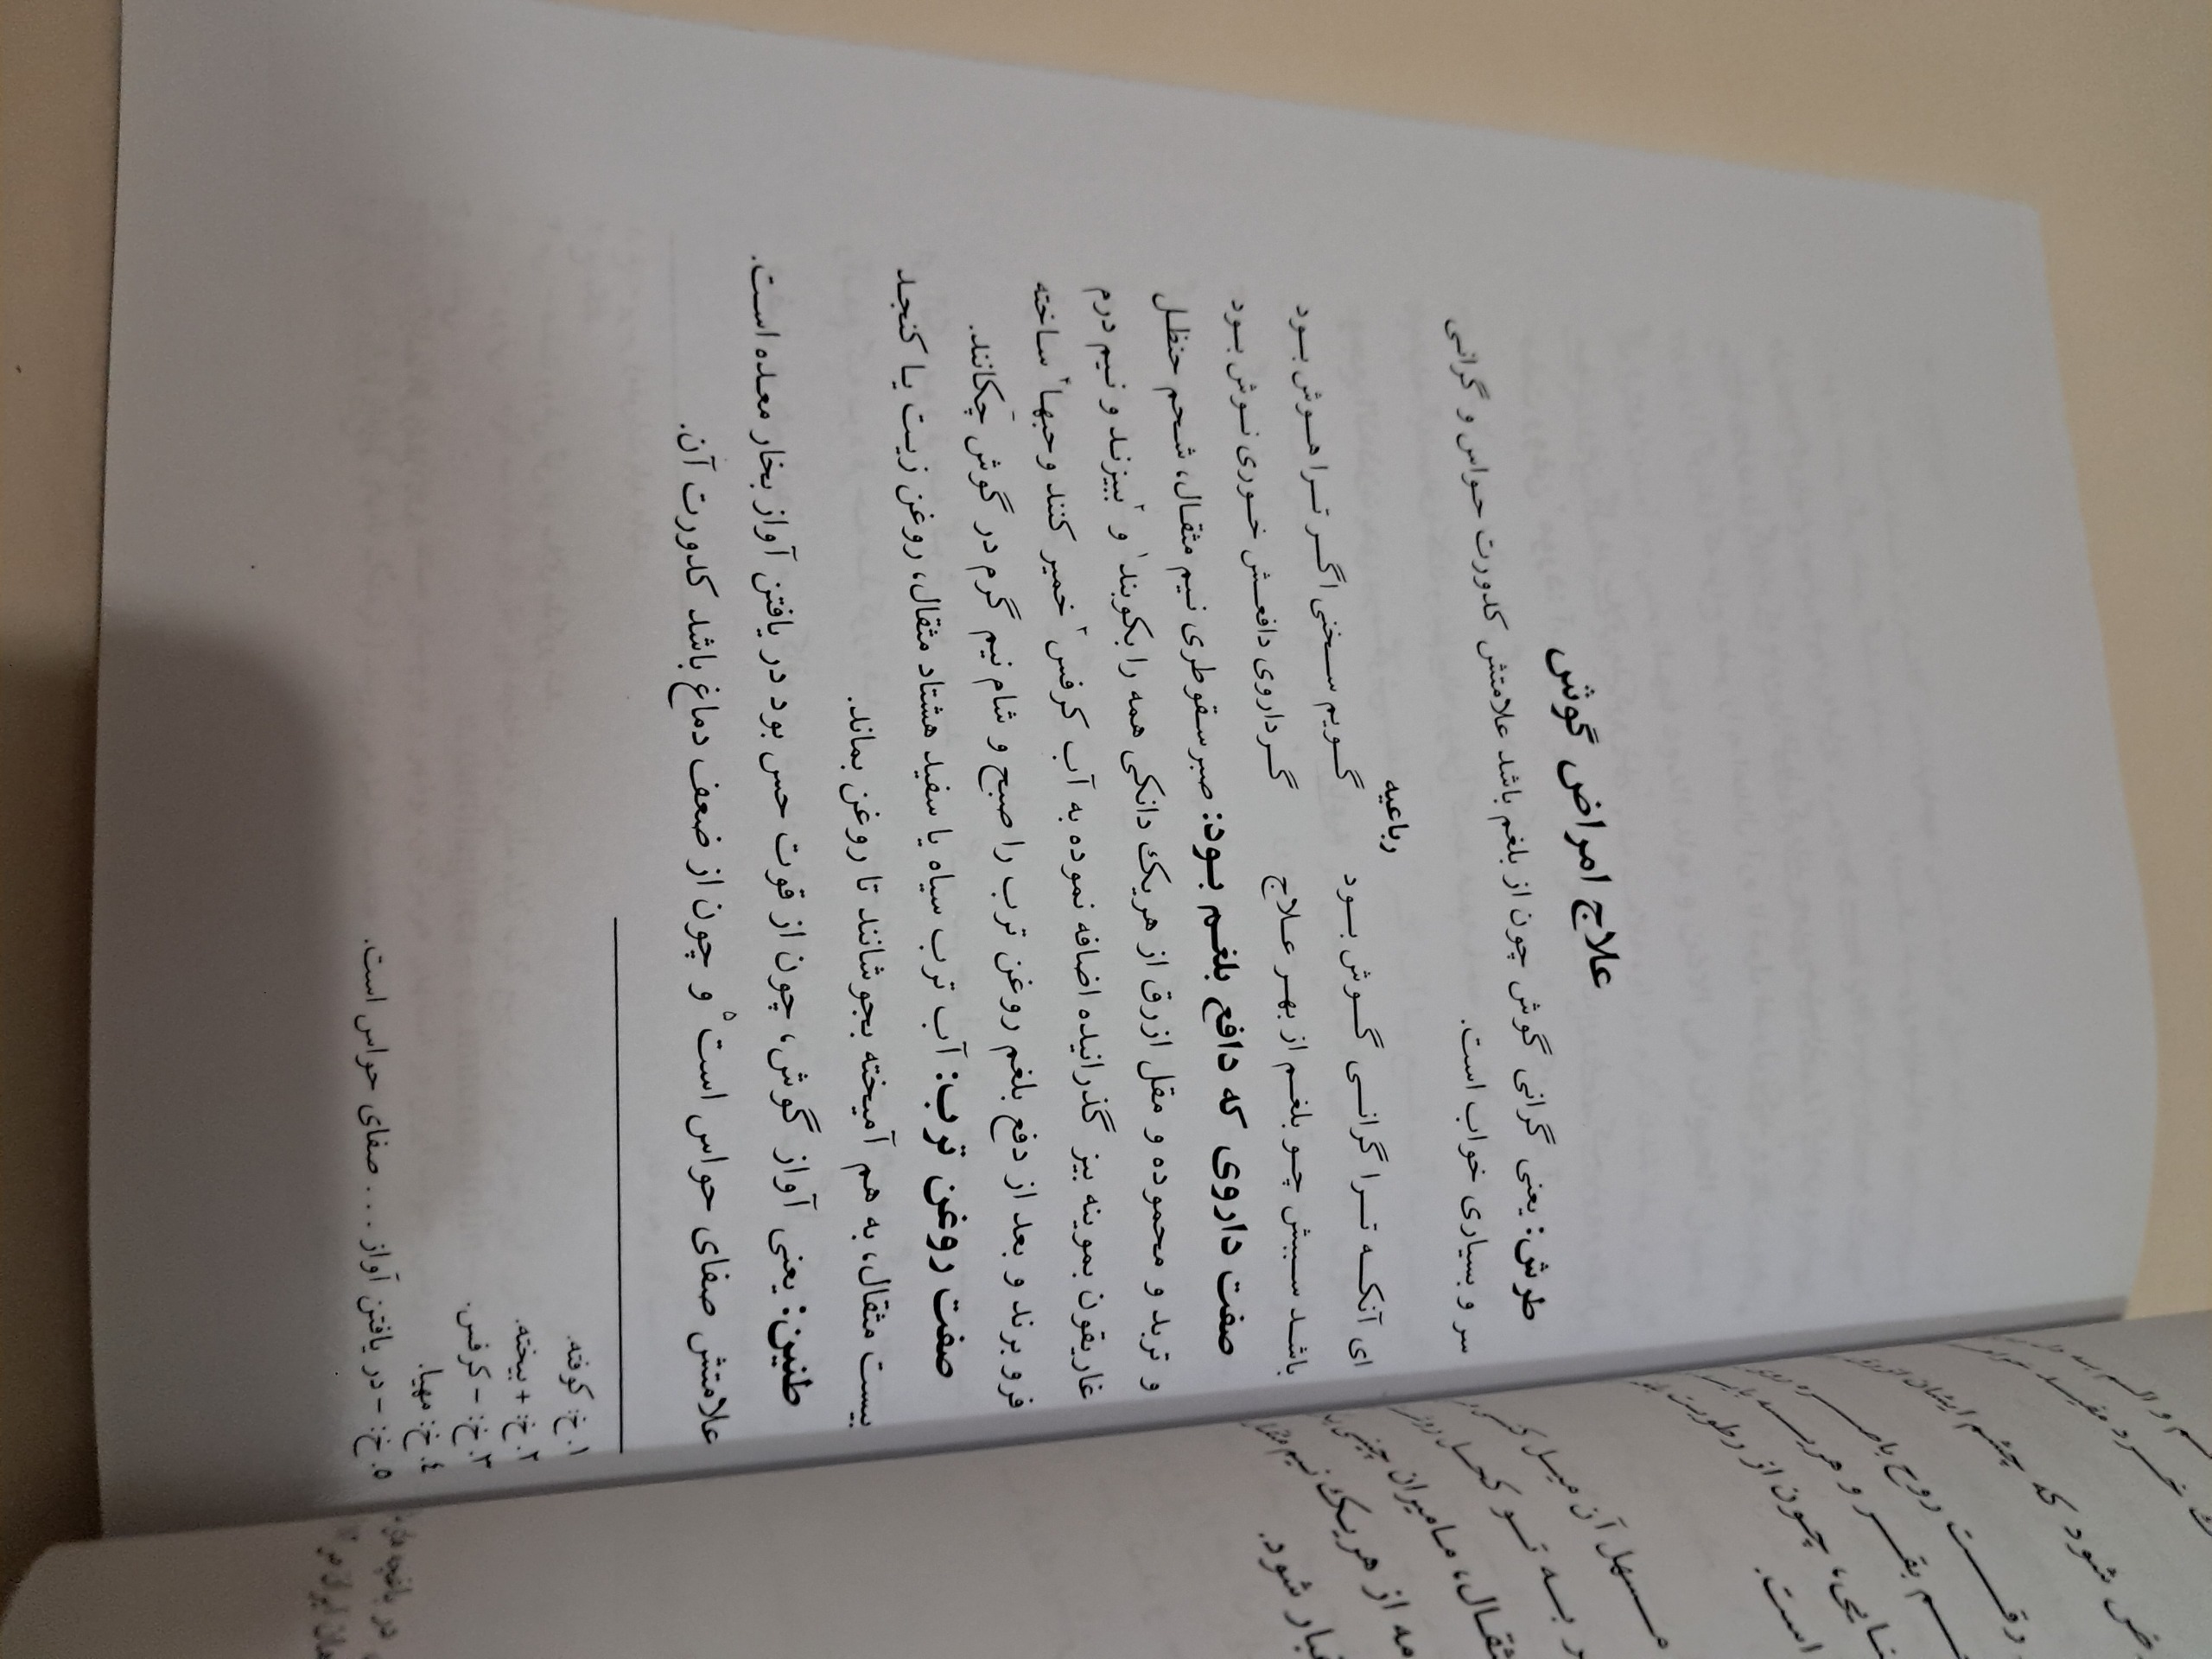 علاج امراض گوش
طرش: یعنی گرانی گوش چون از بلغم باشد علامتش کدورت حواس و گرانی
سر و بسیاری خواب است.
رباعیه
ای آنکه ترا گرانی گوش بود گویم سخنی اگر ترا هوش بود
باشد سببش چو بلغم از بهر علاج گر داروی دافعش خوری نوش بود
صفت داروی که دافع بلغم بود: صبر سقوطری نیم مثقال، شحم حنظل
و تربد و محموده و مقل ازرق از هریک دانکی همه را بکوبند۱ و۲ ببیزند و نیم درم
غاریقون بموینه بیز گذرانیده اضافه نموده به آب کرفس۳ خمیر کنند و حبها۴ ساخته
فرو برند و بعد از دفع بلغم روغن ترب را صبح و شام نیم گرم در گوش چکانند.
صفت روغن ترب: آب ترب سیاه یا سفید هشتاد مثقال، روغن زیت یا کنجد
بیست مثقال، به هم آمیخته بجوشانند تا روغن بماند.
طنین: یعنی آواز گوش، چون از قوت حس بود در یافتن آواز بخار معده است.
علامتش صفای حواس است۵ و چون از ضعف دماغ باشد کدورت آن.
۱. خ: کوفته.
۲. خ: + بیخته.
۳. خ: - کرفس.
٤. خ: مهیا.
۵. خ: - در یافتن آواز... صفای حواس است.
مسهل آن میل
به تو کحل
مثقال، مامیران چینی
مه از هریک نیم
غبار شود.
شود که چشم ایشان
وقت روح باصره
نایی، چون از رطوبت
است.